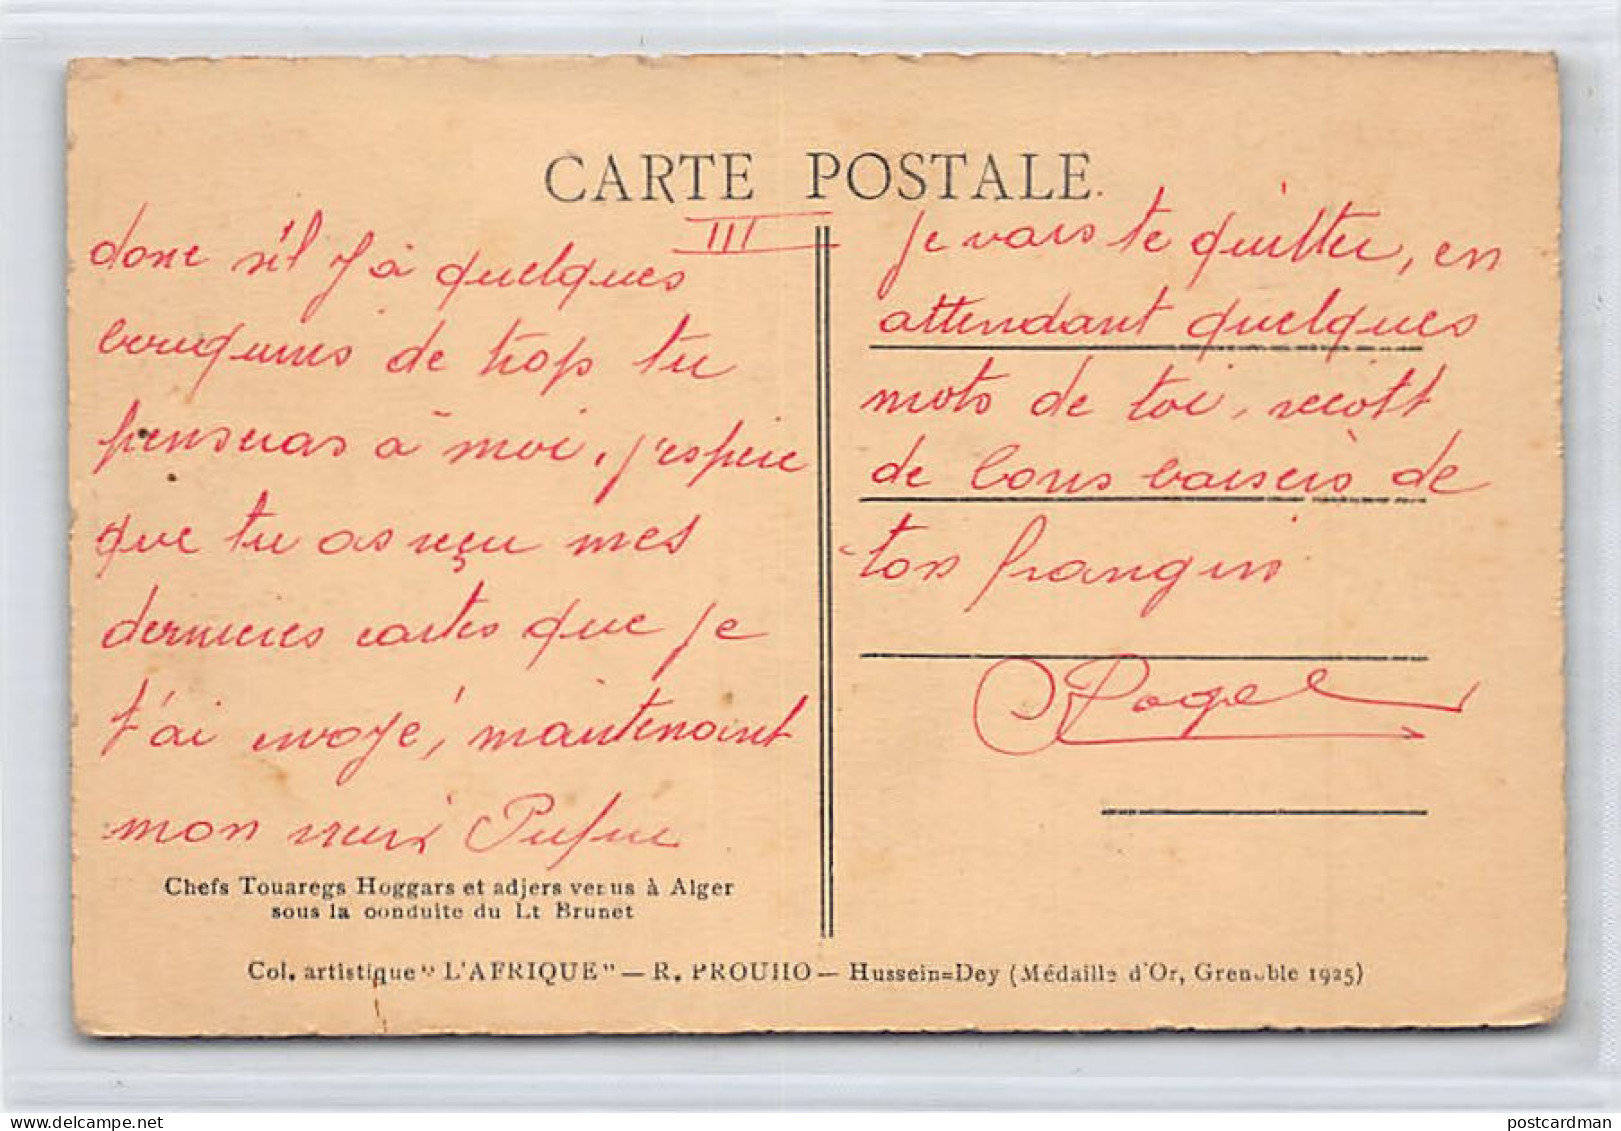 CARTE POSTALE
III
donc s'il y a quelques
bouquins de trop tu
penseras à moi, j'espère
que tu as reçu mes
dernières cartes que je
t'ai envoyé, maintenant
mon vieux
je vais te quitter, en
attendant quelques
mots de toi, reçoit
de bons baisers de
ton frangin
Chefs Touaregs Hoggars et adjers venus à Alger
sous la conduite du Lt Brunet
Col. artistique "L'AFRIQUE" — R. PROUHO — Hussein=Dey (Médaille d'Or, Grenoble 1925)
postcardman